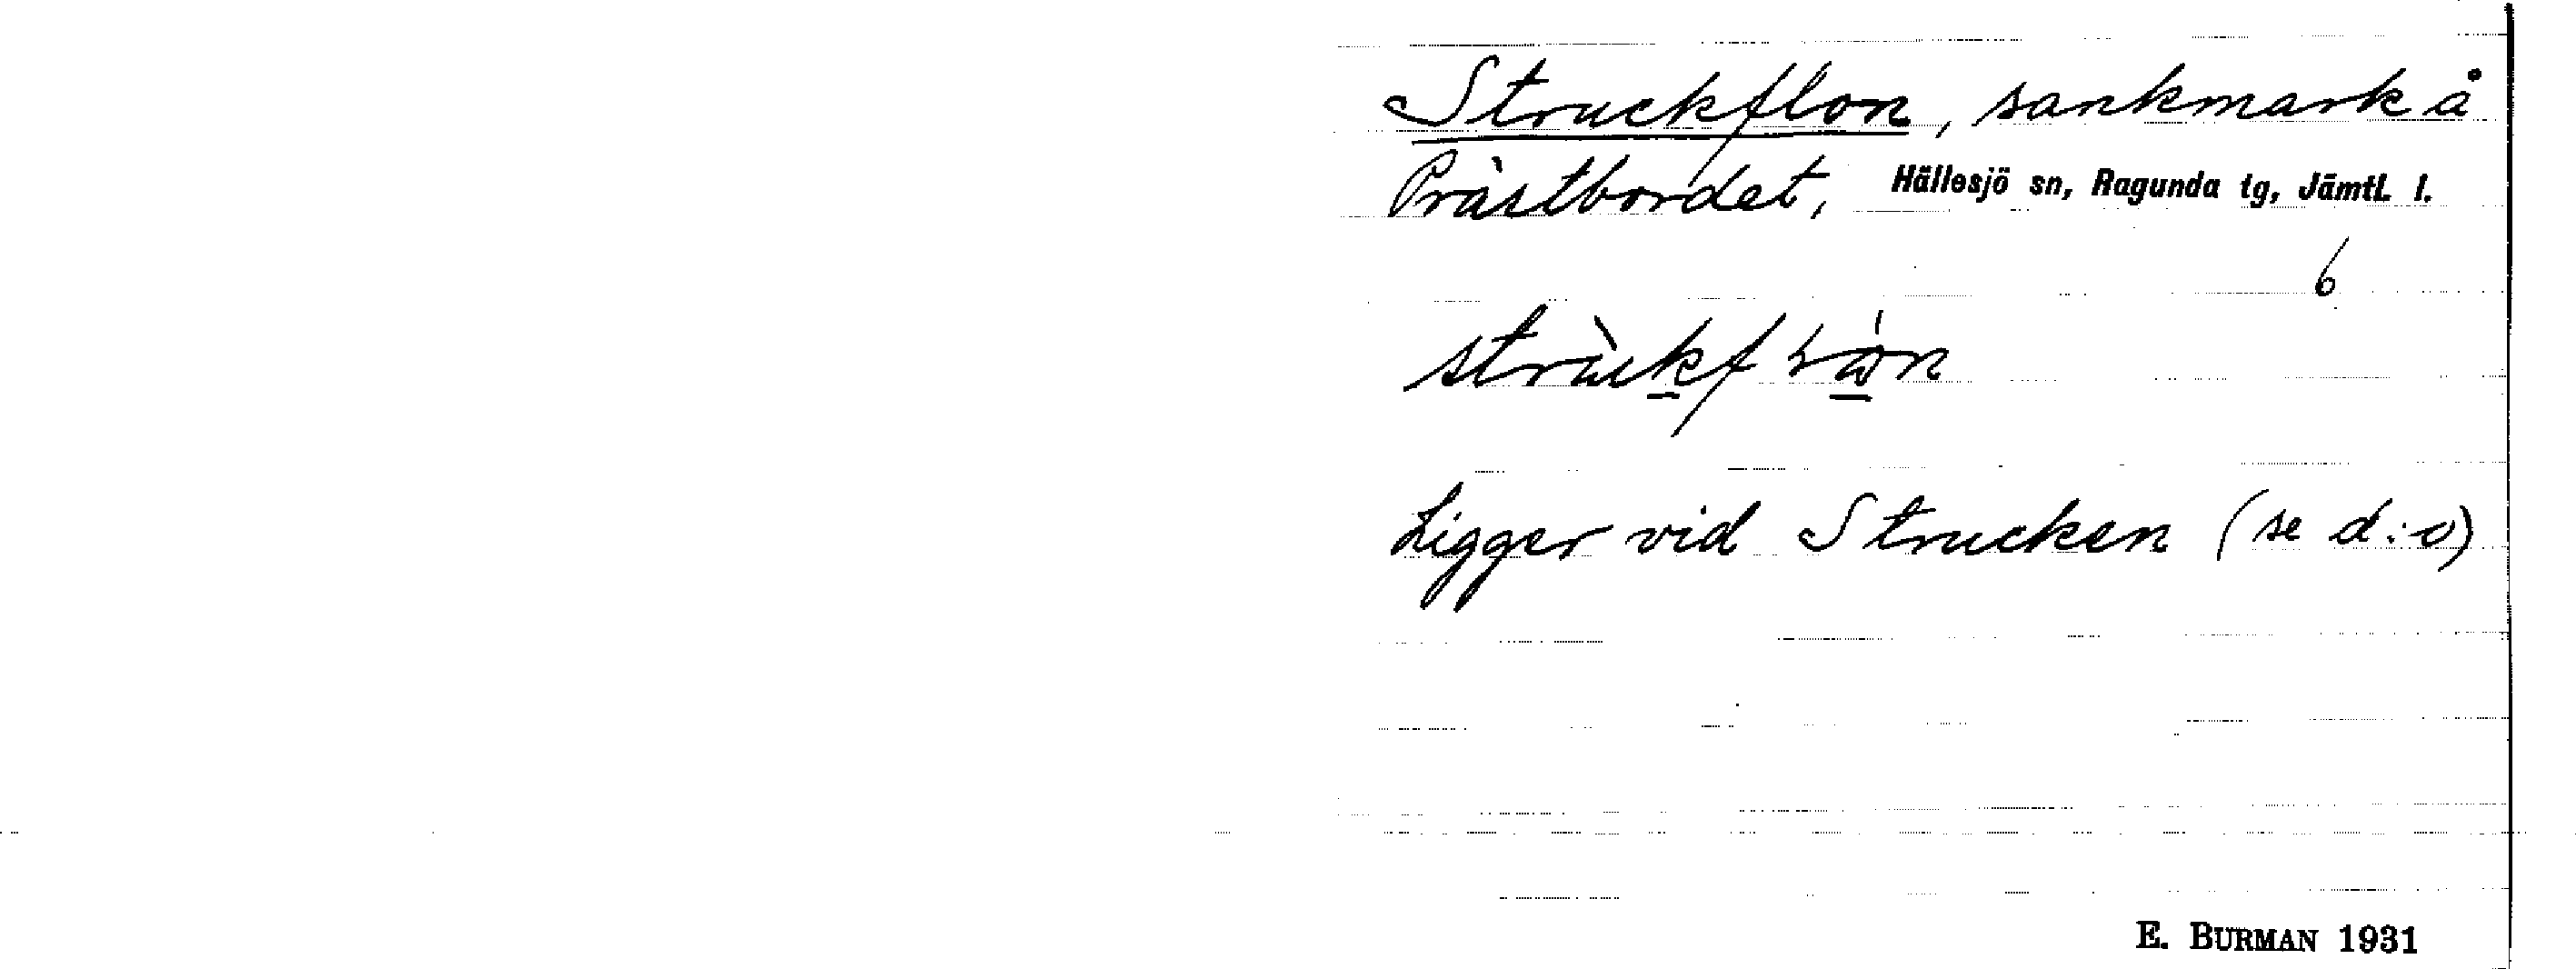 Struckflon, sankmark å
Prästbordet, Hällesjö sn, Ragunda tg, Jämtl. l.
6
Ligger vid Strucken (se d:o)
E. BURMAN 1931